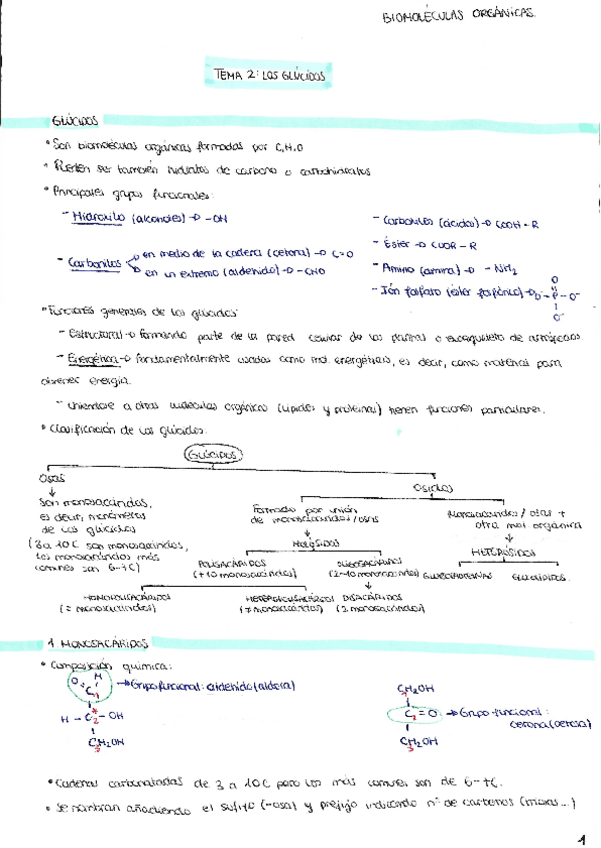 BIOMOLÉCULAS ORGÁNICAS.
TEMA 2: LOS GLÚCIDOS
GLÚCIDOS
• Son biomoléculas orgánicas formadas por C, H, O
• Pueden ser también hidratos de carbono o carbohidratos
• Principales grupos funcionales:
- Hidroxilo (alcoholes) → -OH
- Carbonilos
en medio de la cadena (cetona) → C=O
en un extremo (aldehído) → -CHO
- Carboxilos (ácidos) → COOH-R
- Éster → COOR-R
- Amino (amina) → -NH2
- Ión fosfato (éster fosfórico) → O--P-O-
O
O-
• Funciones generales de los glúcidos
- Estructural → formando parte de la pared celular de las plantas o exoesqueleto de artrópodos.
- Energética → fundamentalmente usados como mol. energéticas, es decir, como moléculas para
obtener energía.
- Uniéndose a otras moléculas orgánicas (lípidos y proteínas) tienen funciones particulares.
• Clasificación de los glúcidos:
GLÚCIDOS
Osas
Ósidos
Son monosacáridos,
es decir, monómeros
de los glúcidos
(3 a 10C son monosacáridos,
los monosacáridos más
comunes son 6-7C)
Formado por unión
de monosacáridos/osas
Monosacáridos/osas +
otra mol. orgánica
HOLÓSIDOS
HETERÓSIDOS
POLISACÁRIDOS
(+10 monosacáridos)
OLIGOSACÁRIDOS
(2-10 monosacáridos)
GLUCOPROTEÍNAS
GLUCOLÍPIDOS.
HOMOPOLISACÁRIDOS
(= monosacáridos)
HETEROPOLISACÁRIDOS
(≠ monosacáridos)
DISACÁRIDOS
(2 monosacáridos)
1 MONOSACÁRIDOS
• Composición química:
O H
C1
→ Grupo funcional: aldehído (aldosa)
H - C2 - OH
*
CH2OH
3
CH2OH
1
C2 = O → Grupo funcional:
cetona (cetosa)
CH2OH
3
• Cadenas carbonatadas de 3 a 10C pero los más comunes son de 6-7C.
• Se nombran añadiendo el sufijo (-osa) y prefijo indicando nº de carbonos
1